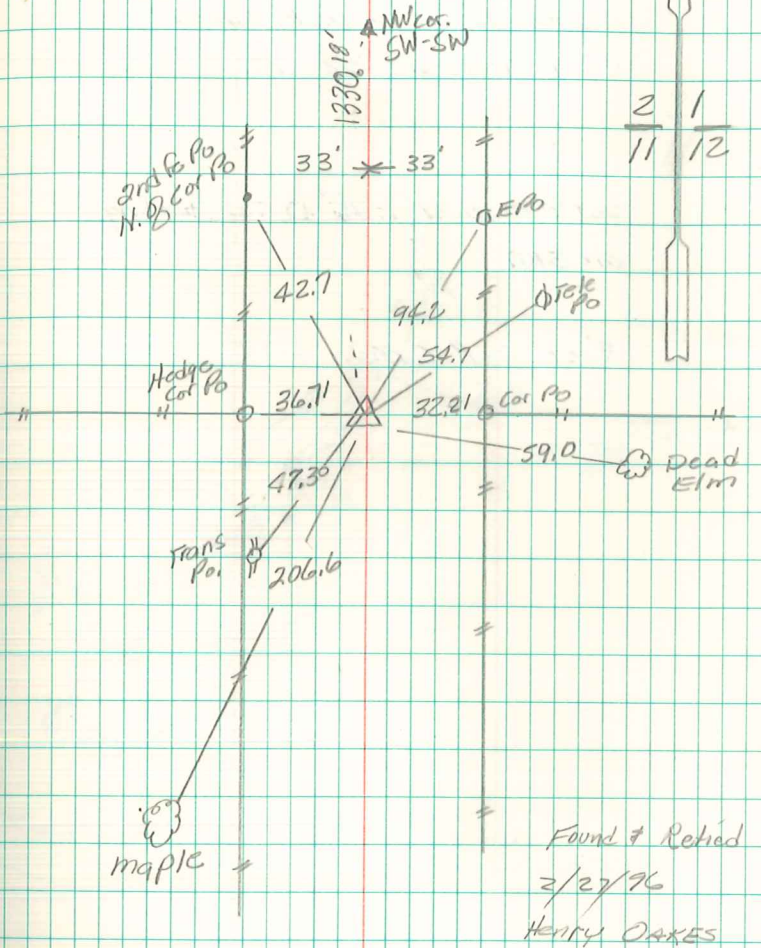 NW cor.
SW-SW
1330.18'
2 | 1
11 | 12
33' 33'
2nd Fe Po
N. of Cor Po
EPo
42.7
94.2
Tele
Po
54.7
Hedge
Cor Po
36.71
32.21
Cor Po
59.0
Dead
Elm
47.30
Trans
Po.
206.6
maple
Found & Retied
2/27/96
Henry OAKES